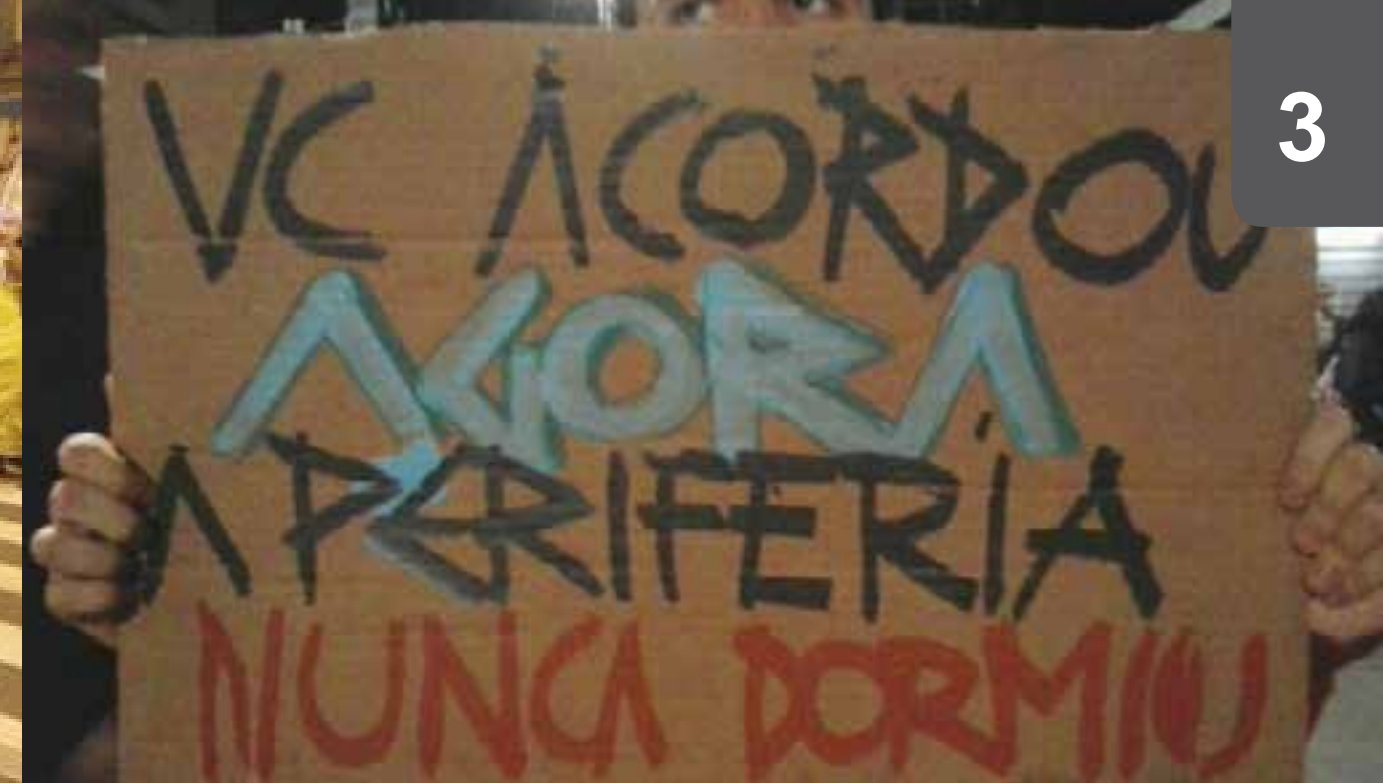 3
VC ACORDOU
AGORA
A PERIFERIA
NUNCA DORMIU